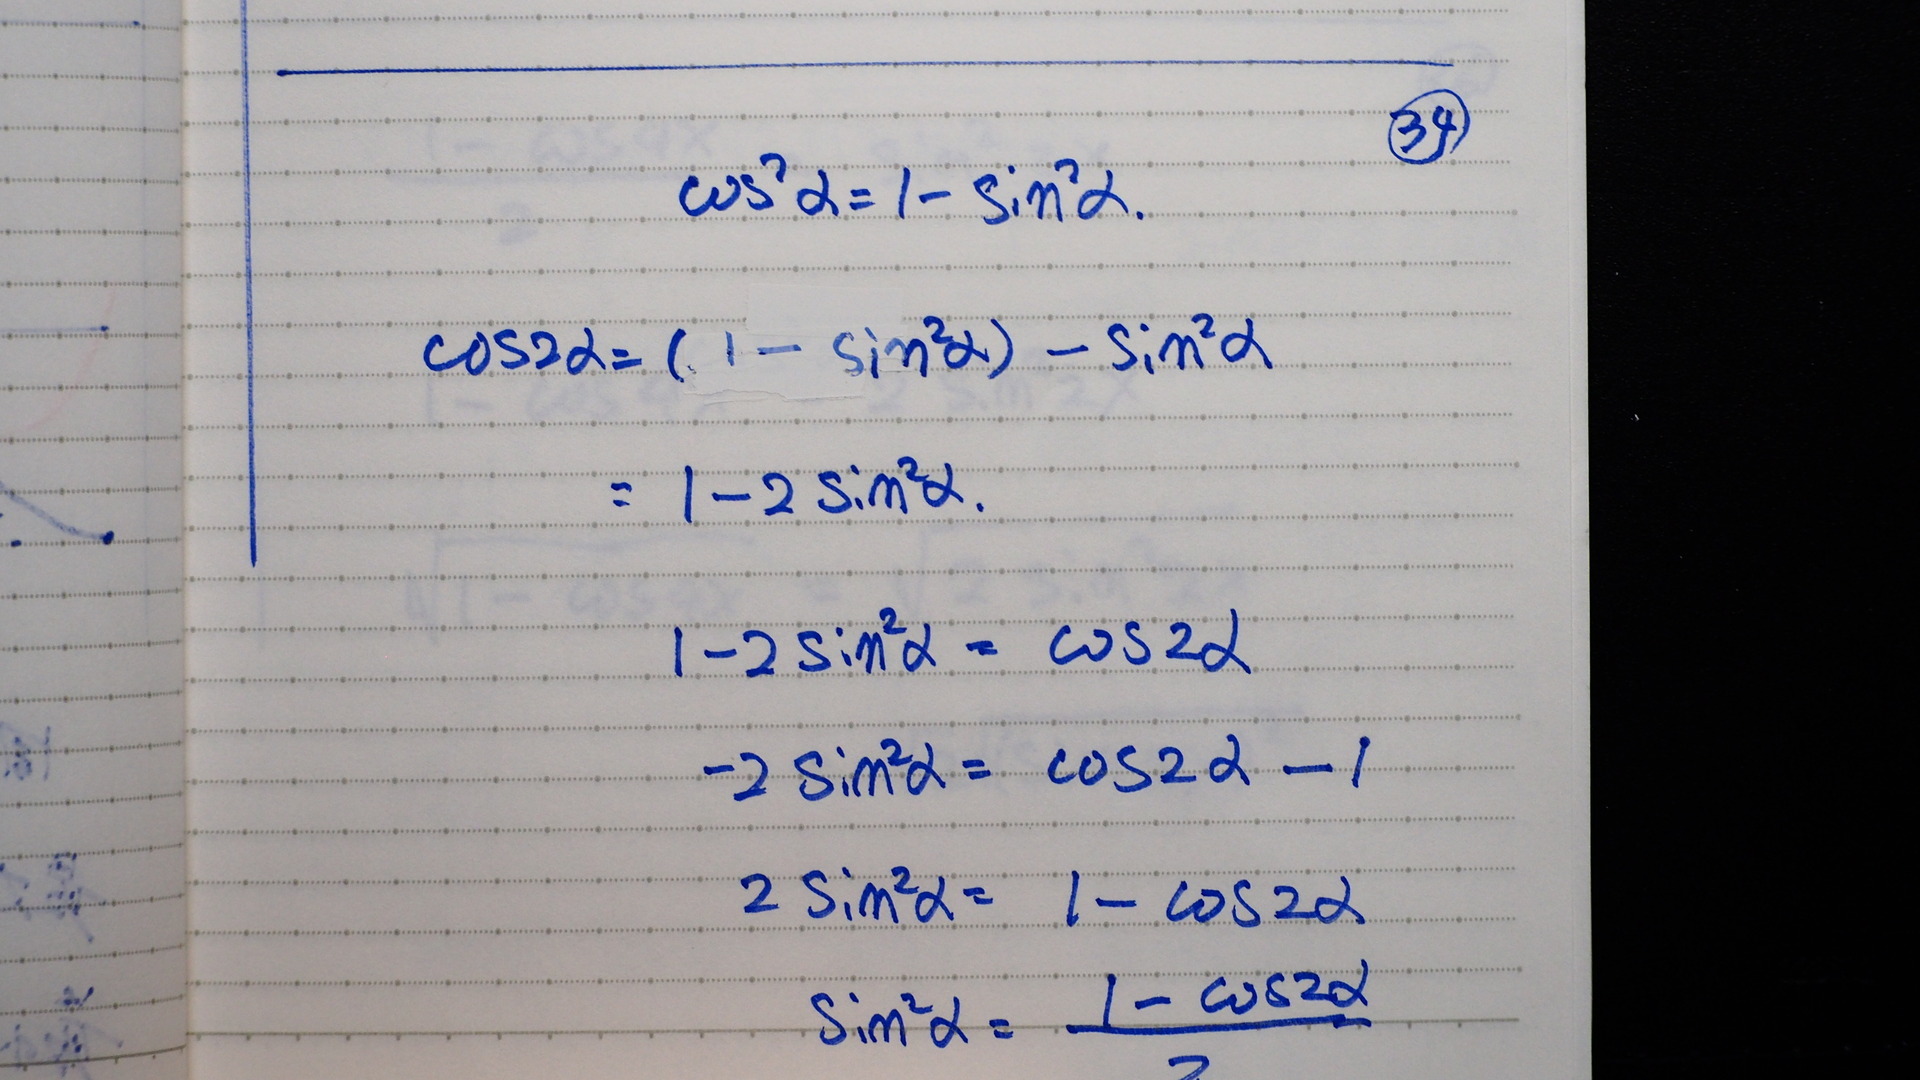 34
cos²α = 1 - sin²α.
cos2α = (1 - sin²α) - sin²α
= 1 - 2 sin²α.
1 - 2 sin²α = cos2α
-2 sin²α = cos2α - 1
2 sin²α = 1 - cos2α
sin²α = \frac{1 - cos2α}{2}